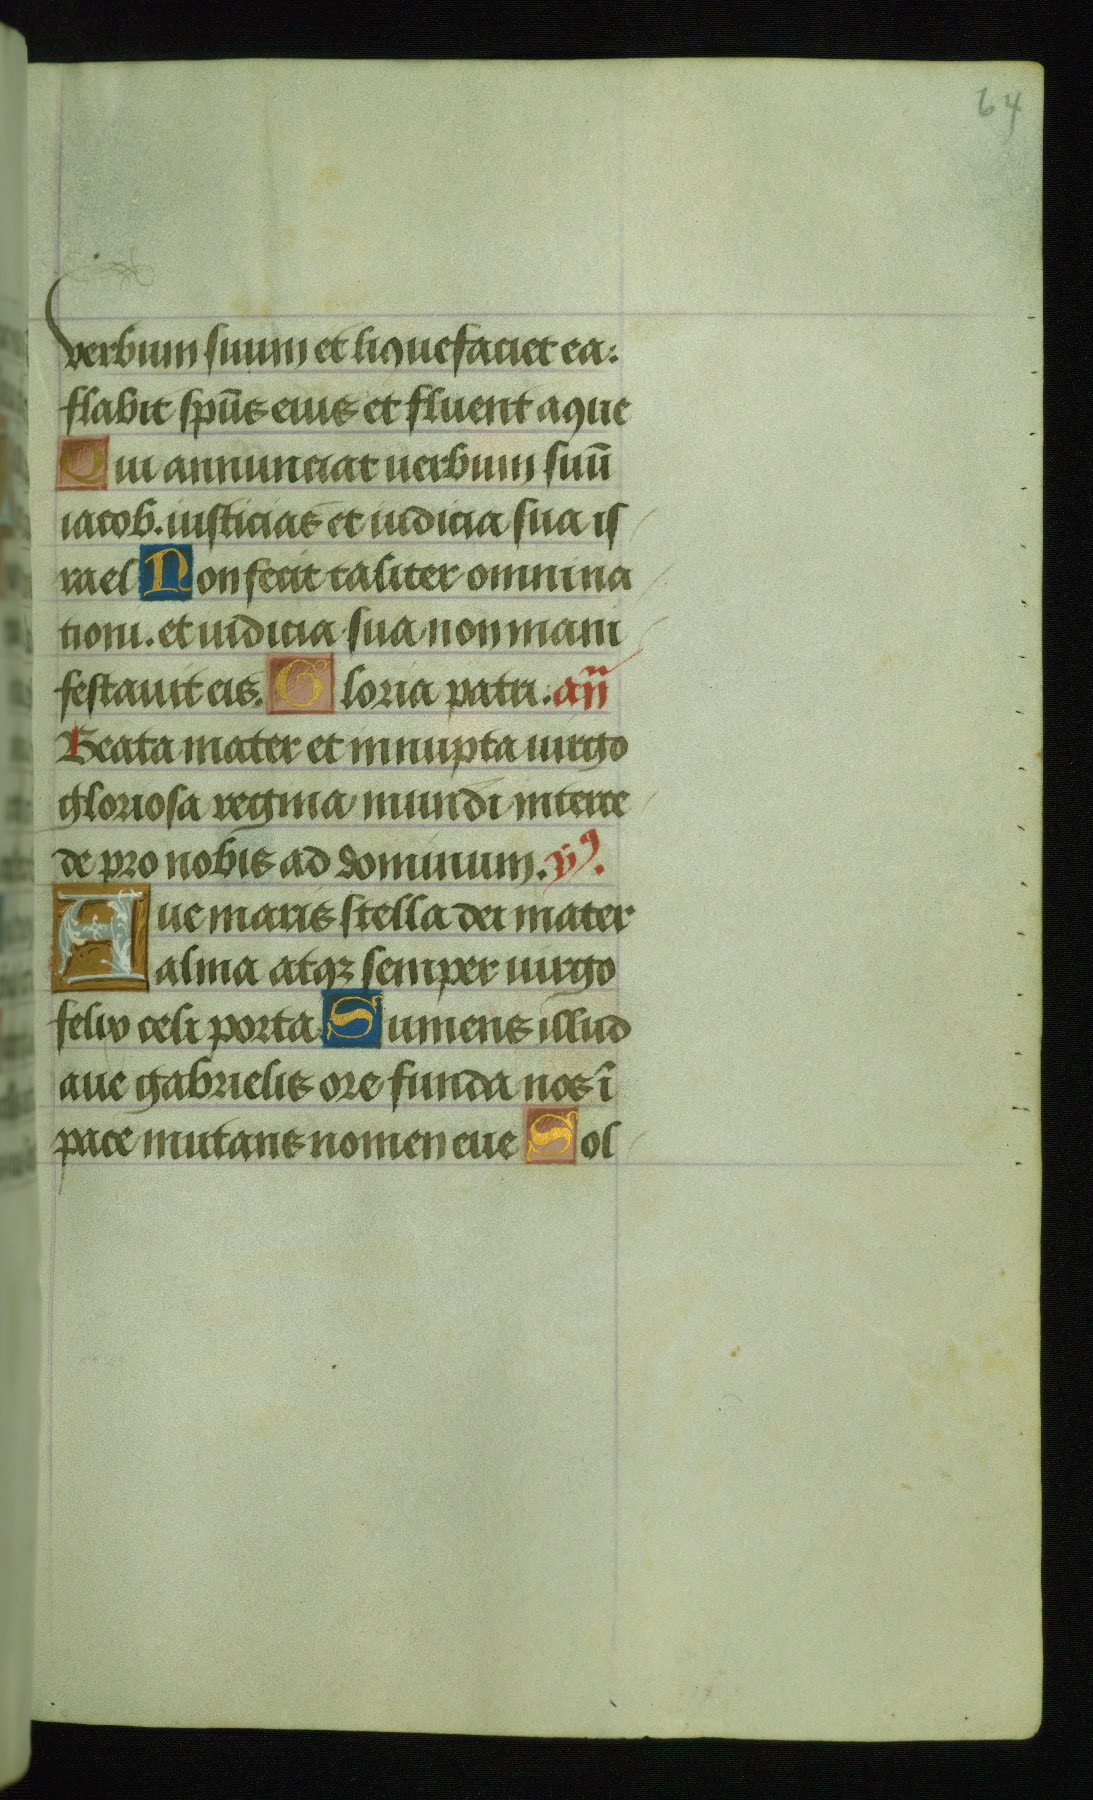 64
verbum suum et liquefaciet ea:
flabit sp̄us eius et fluent aque
Qui annunciat verbum suū
iacob. iusticias et iudicia sua is
rael Non fecit taliter omni na
tioni. et iudicia sua non mani
festavit eis. Gloria patri. añ
Beata mater et innupta virgo
gloriosa regina mundi interce
de pro nobis ad dominum. ẏ⁹.
Aue maris stella dei mater
alma atqꝫ semper virgo
felix celi porta Sumens illud
aue gabrielis ore funda nos ī
pace mutans nomen eue Sol